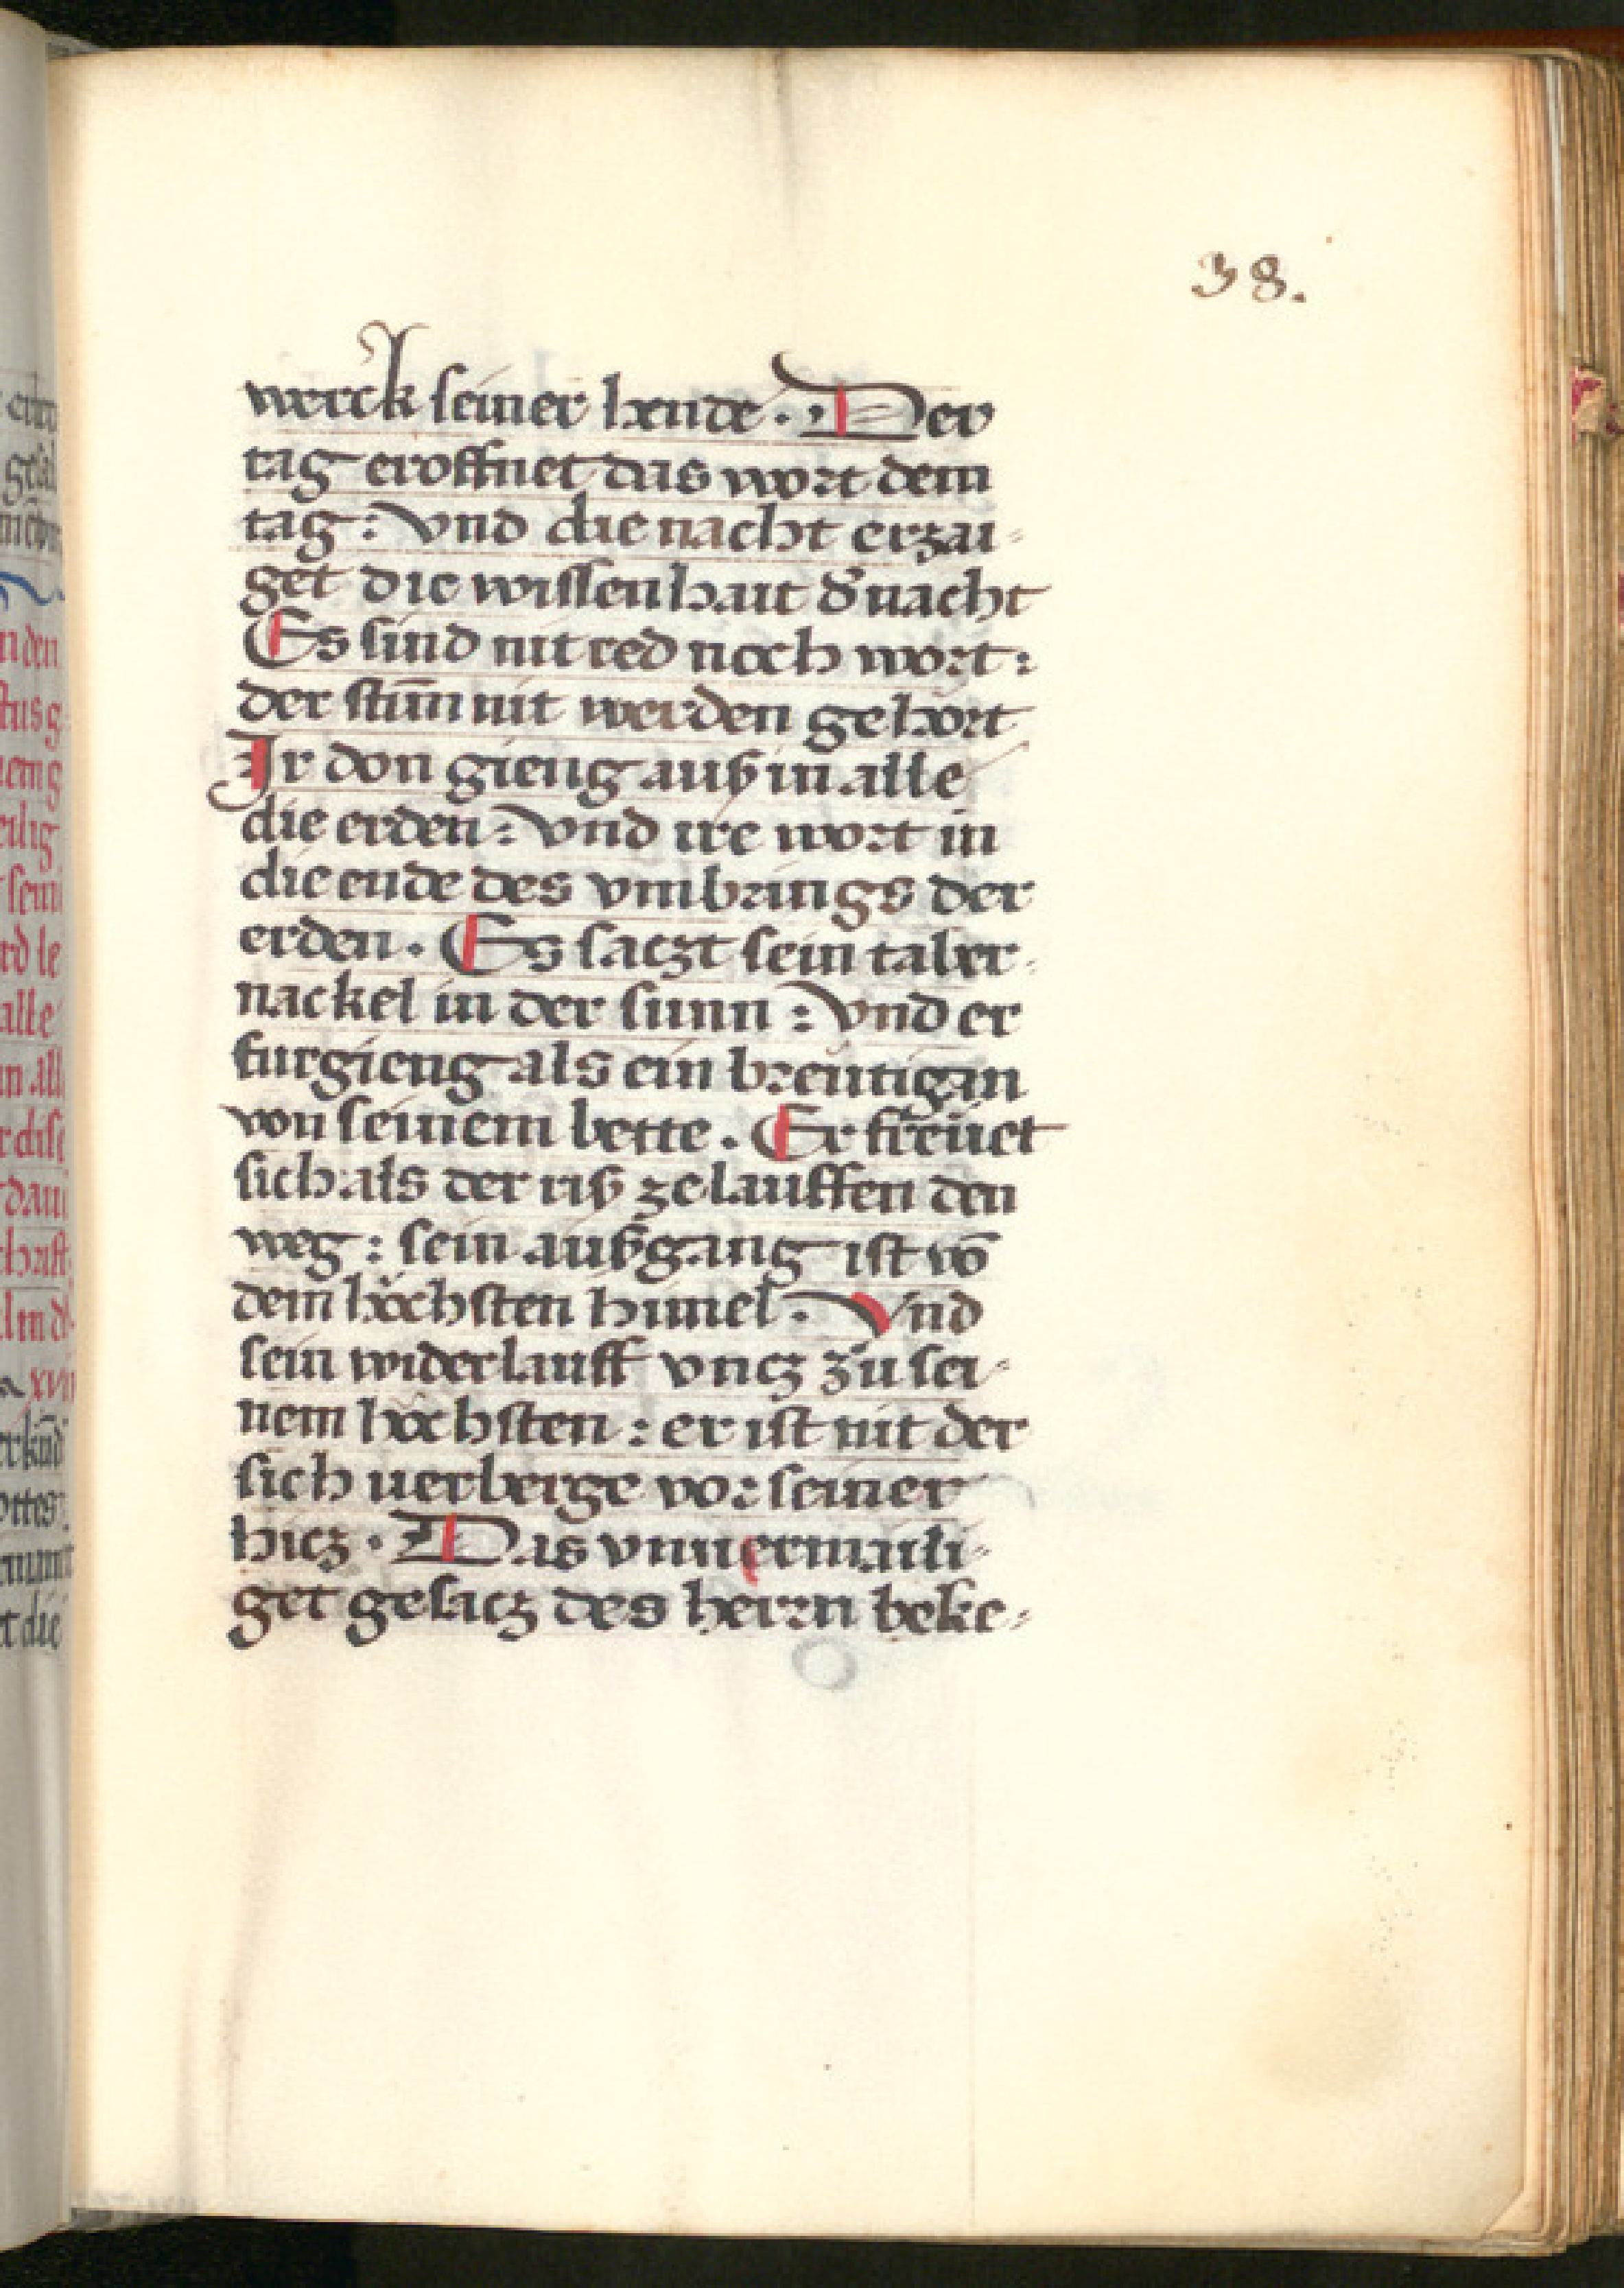 38.
werck seiner hende · Der
tag eroffnet das wort dem
tag : vnd die nacht erzai-
get die wissenhait d' nacht
Es sind nit red noch wort :
der stim̄ nit werden gehort
Ir don gieng auß in alle
die erden : vnd ire wort in
die ende des vmbrings der
erden . Es saczt sein taber-
nackel in der sunn : vnd er
furgieng als ein breutigan
von seinem bette . Er freuet
sich als der riß ze lauffen den
weg : sein außgang ist vō
dem höchsten himel . Vnd
sein widerlauff vncz zu sei-
nem höchsten : er ist nit der
sich uerberge vor seiner
hicz . Das vnuermaili-
get gesacz des herrn beke-